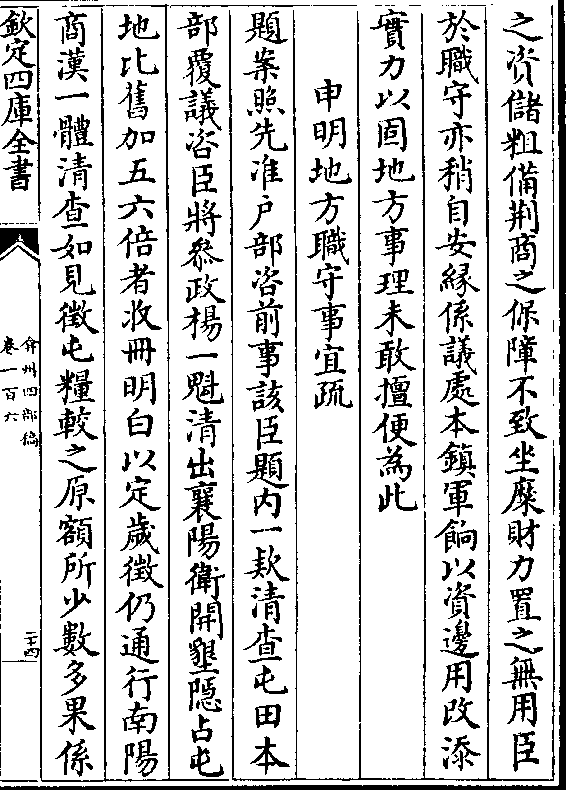 之資儲粗備荆商之保障不致坐糜財力置之無用臣
於職守亦稍自安緣係議處本鎮軍餉以資邊用改添
實力以固地方事理未敢擅便為此
申明地方職守事宜疏
題案照先准户部咨前事該臣題内一款清查屯田本
部覆議咨臣將叅政楊一魁清出襄陽衛開墾隱占屯
地比舊加五六倍者收冊明白以定歲徵仍通行南陽
商漢一體清查如見徵屯糧較之原額所少數多果係
欽定四庫全書
弇州四部稿
卷一百六
二十四